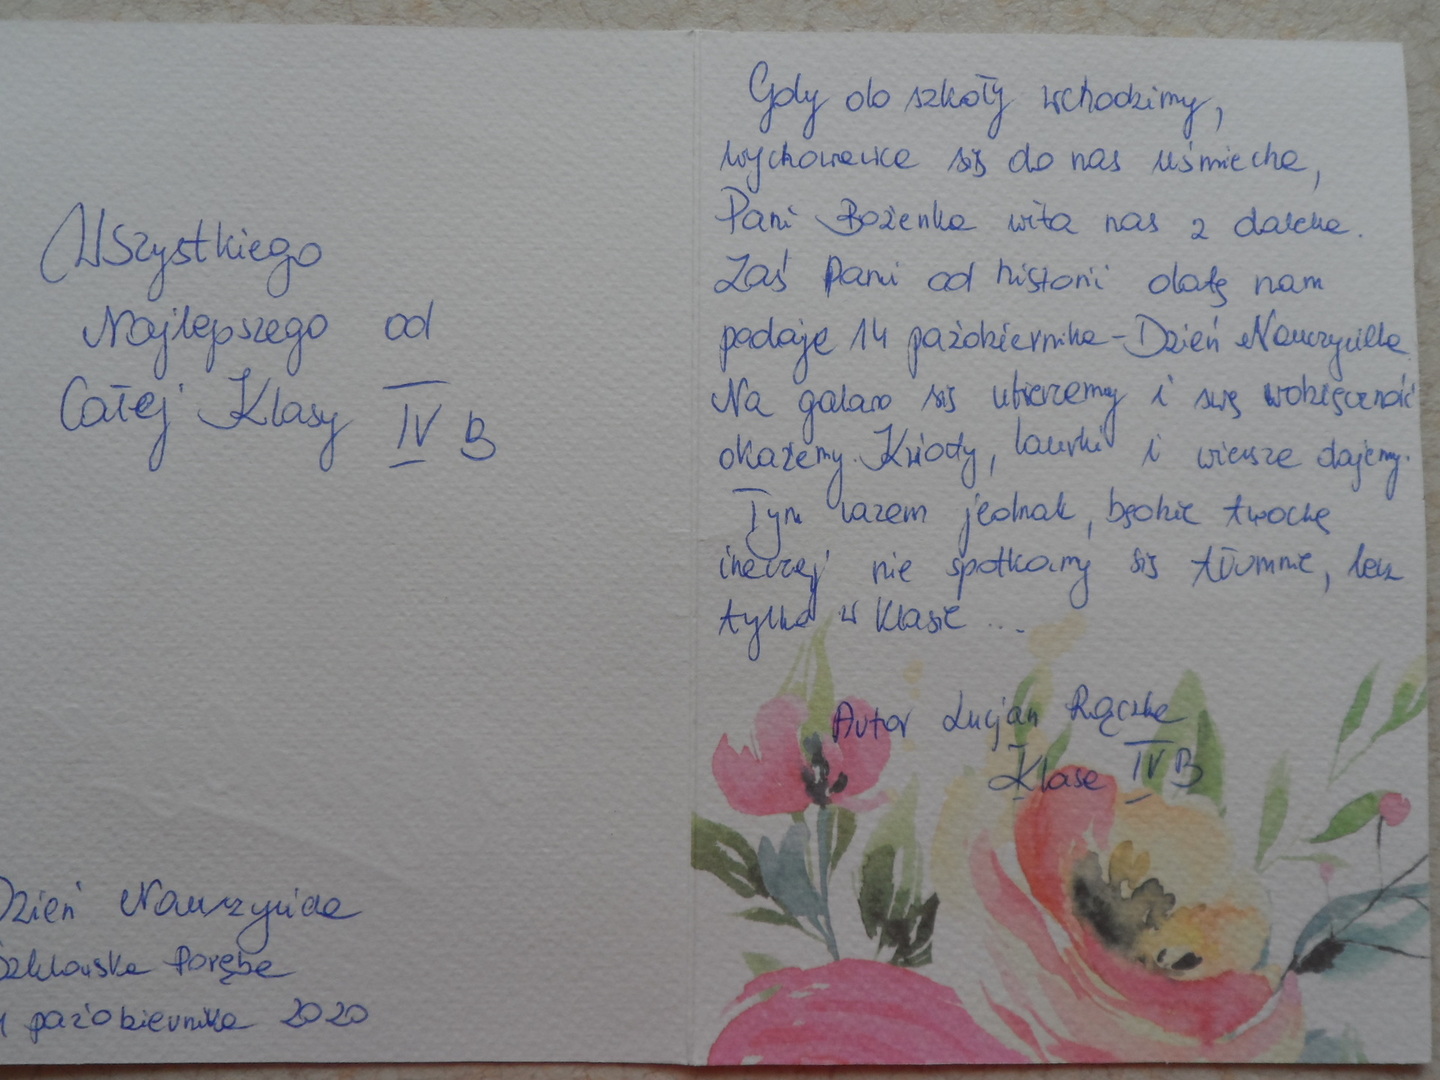 Wszystkiego
Najlepszego od
Całej Klasy IV B
Dzień Nauczyciela
Szklarska Poręba
października 2020
Gdy do szkoły wchodzimy,
wychowawca się do nas uśmiecha,
Pani Bożenka wita nas z daleka.
Zaś Pani od historii datę nam
podaje 14 października - Dzień Nauczyciela
Na galowo się ubierzemy i swą wdzięczność
okażemy. Kwiaty, laurki i wiersze dajemy.
Tym razem jednak, będzie trochę
inaczej nie spotkamy się tłumnie, lecz
tylko w klasie ...
Autor Lucjan Rączka
Klasa IV B